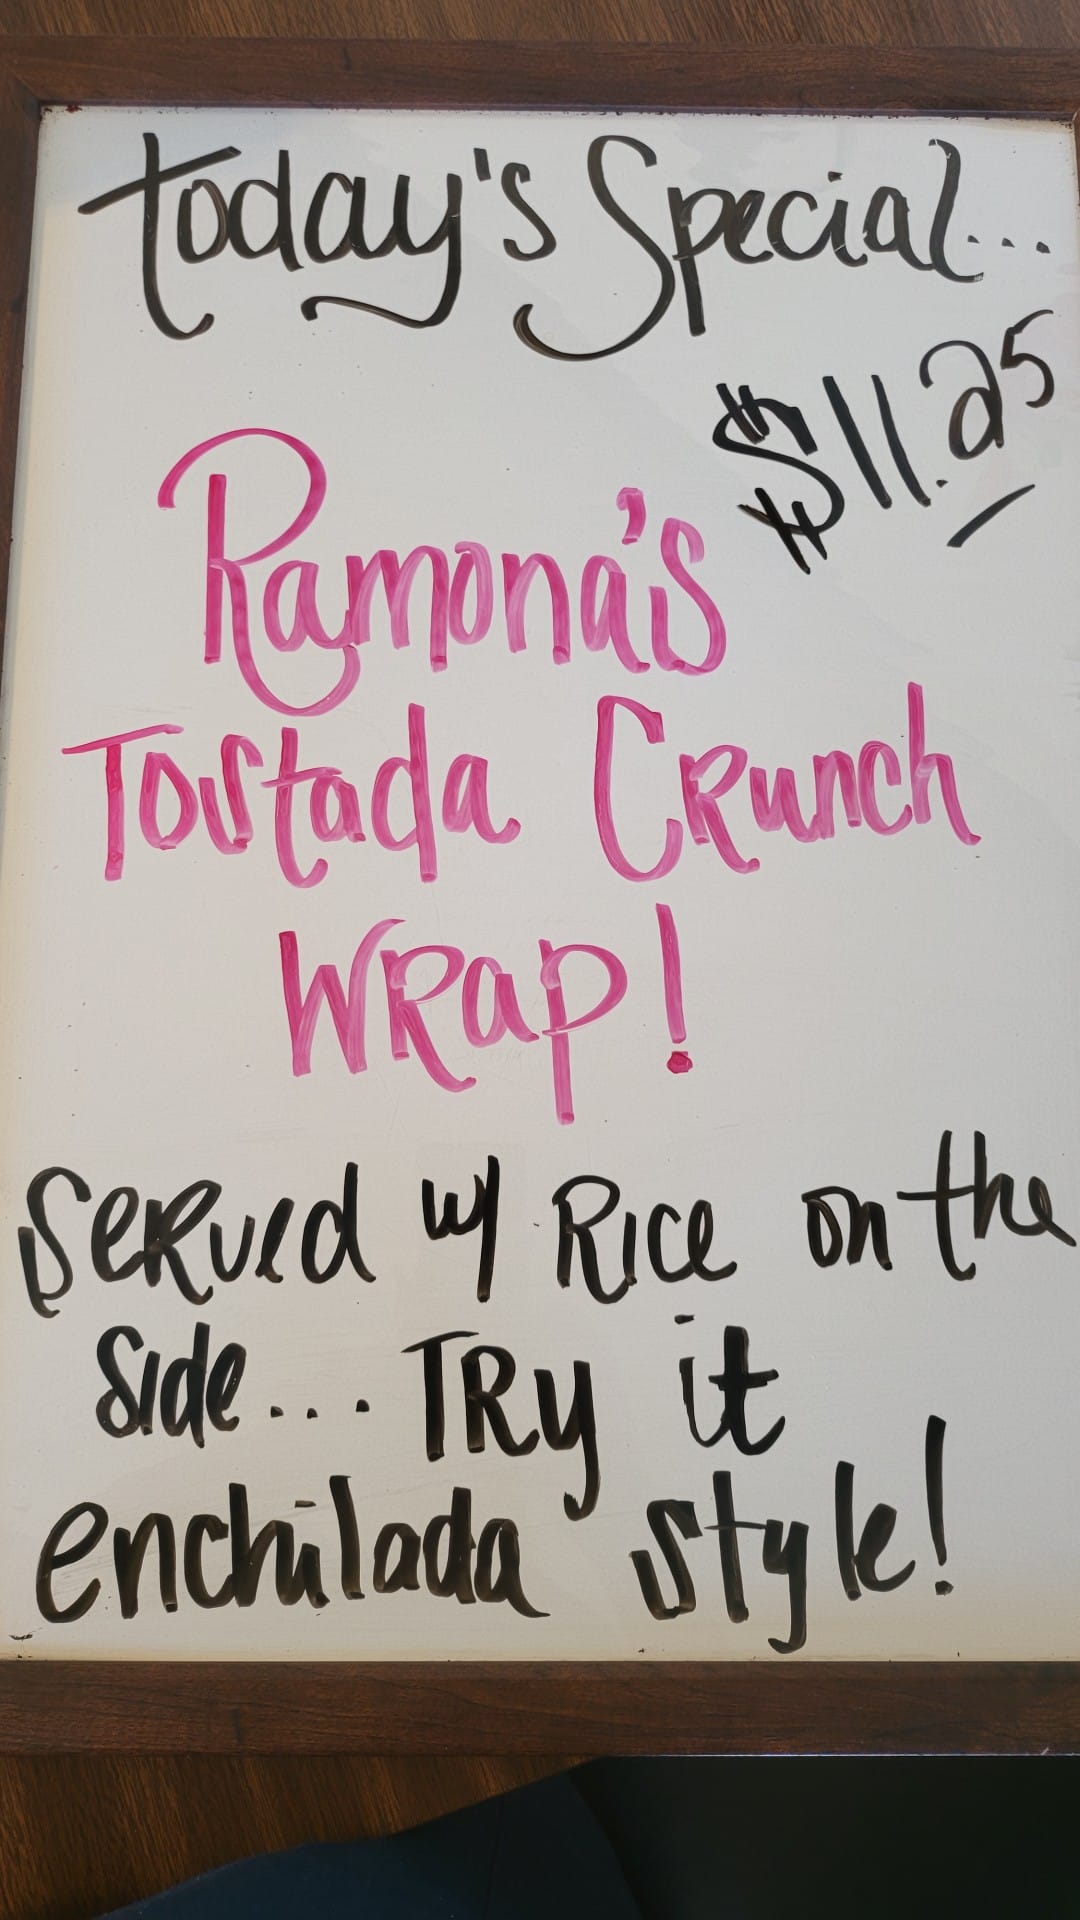 Today's Special...
$11.25
Ramona's
Tostada Crunch
Wrap!
Served w/ Rice on the
side... Try it
enchilada style!